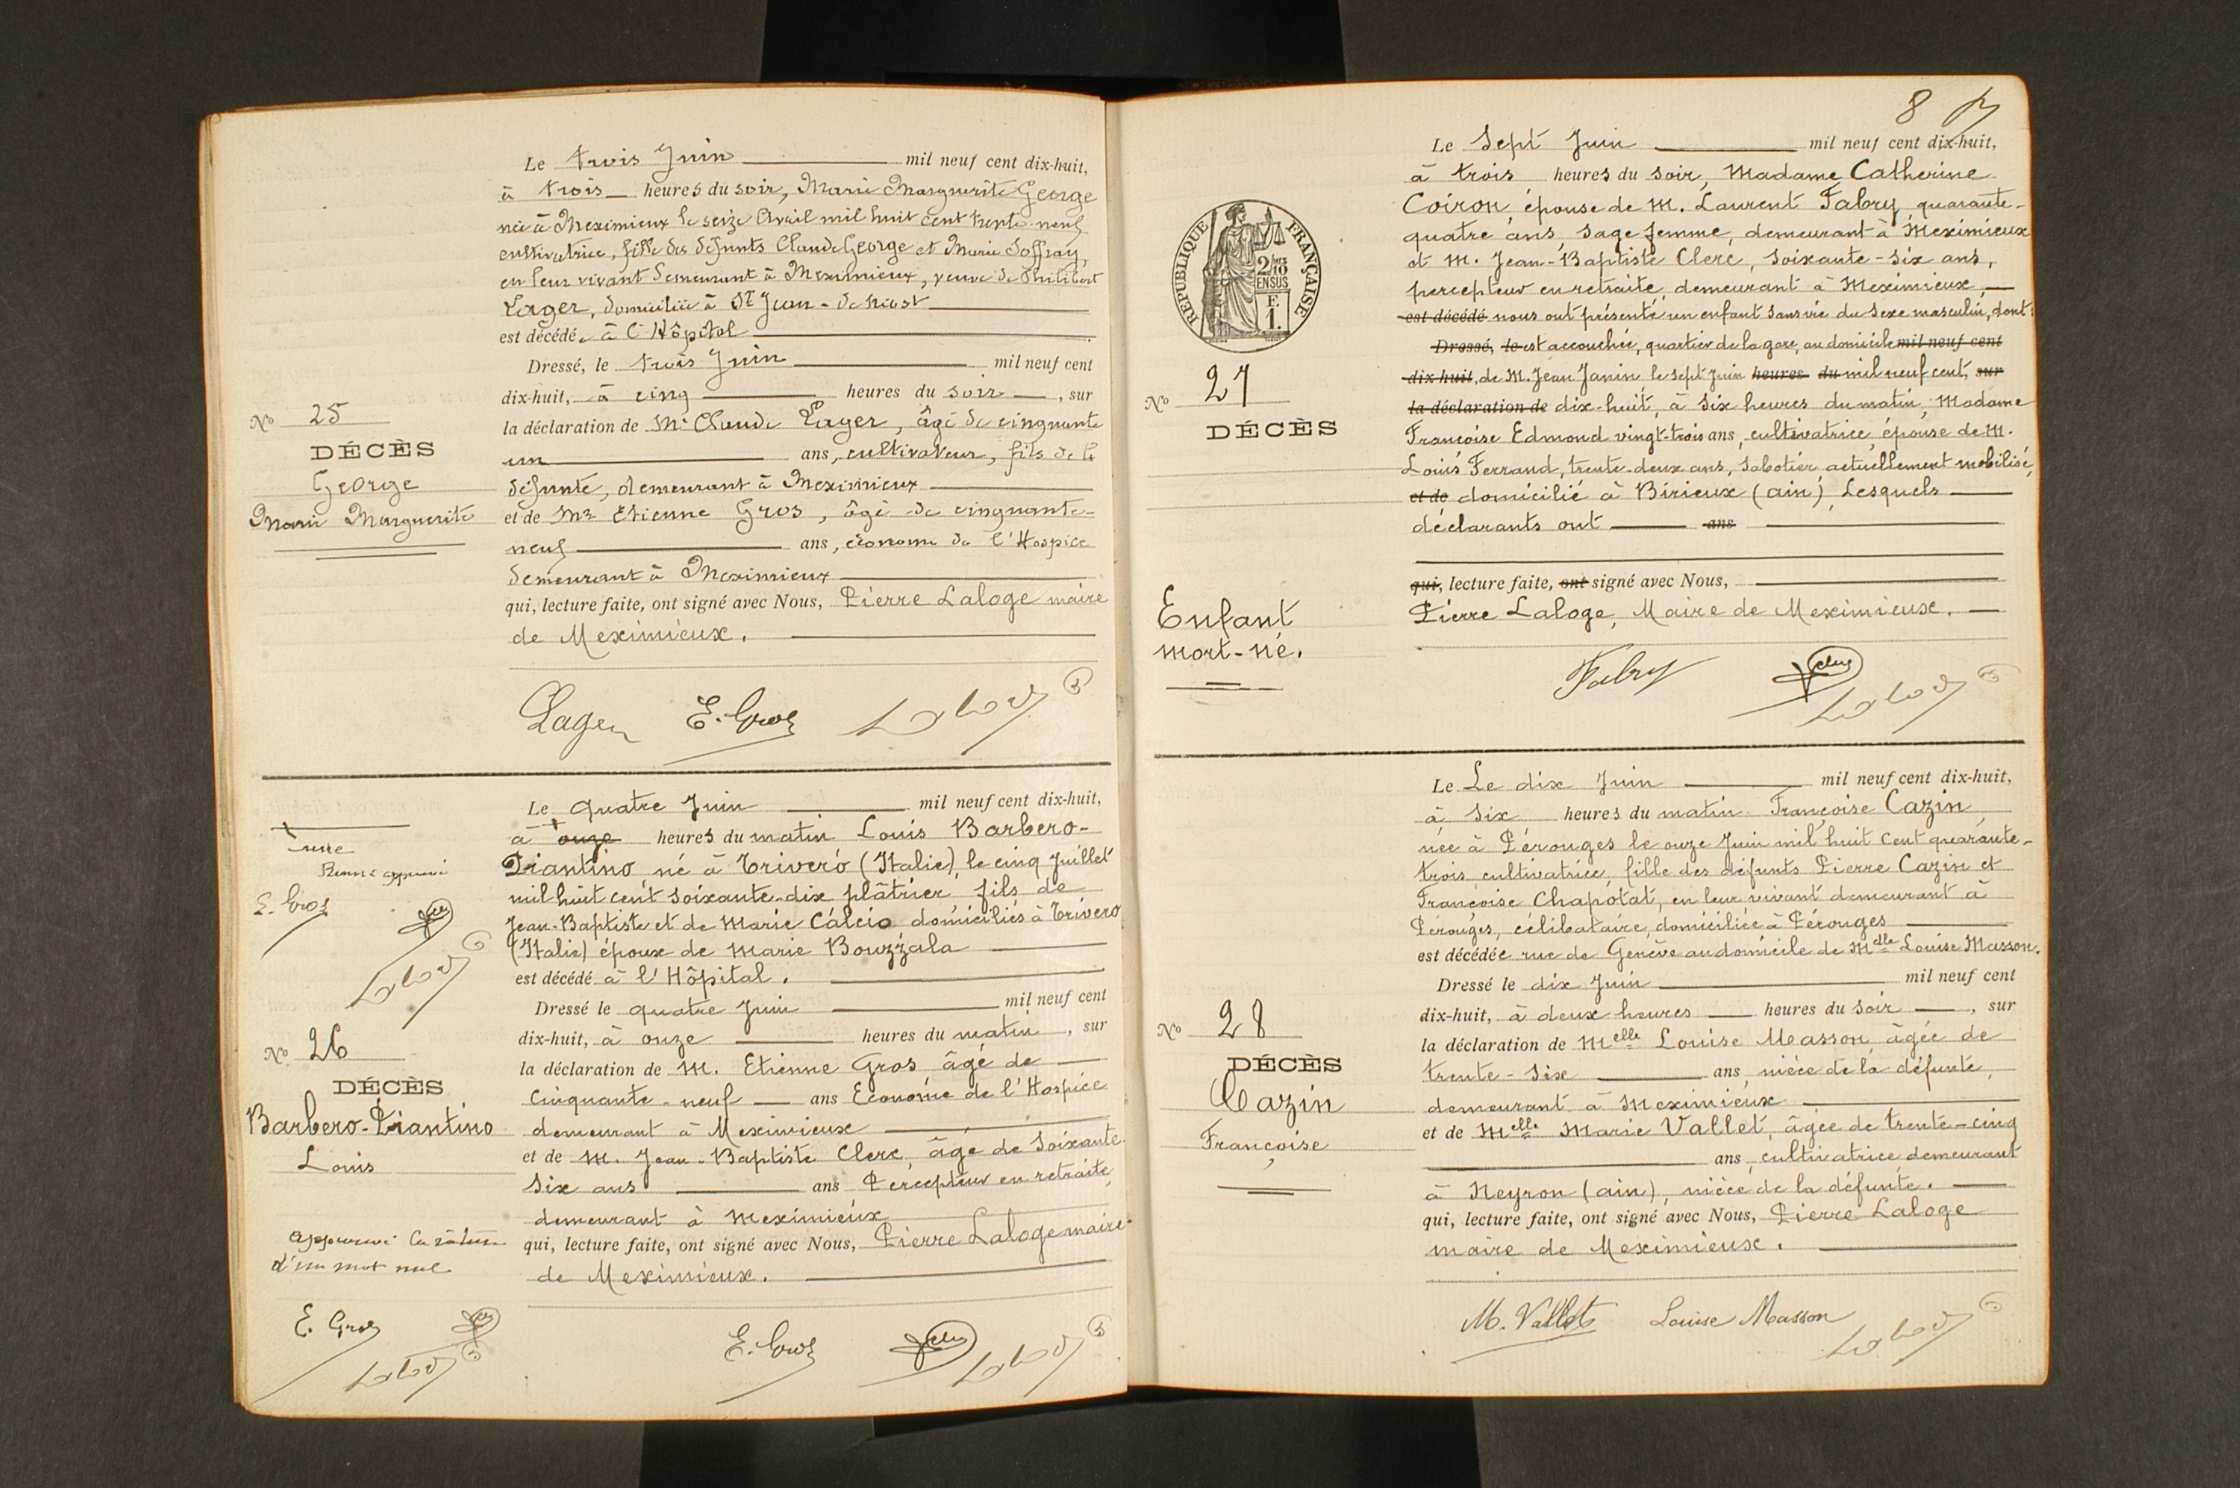 Le trois Juin mil neuf cent dix-huit,
à trois heures du soir, Marie Marguerite George
née à Meximieux le seize Avril mil huit cent trente-neuf
cultivatrice, fille des défunts Claude George et Marie Soffray,
en leur vivant demeurant à Meximieux, veuve de Philibert
Lager, domiciliée à St Jean-de-Niost
est décédée à l'Hôpital
Dressé, le trois Juin mil neuf cent
dix-huit, à cinq heures du soir, sur
la déclaration de Mr Claude Lager, âgé de cinquante
un ans, cultivateur, fils de la
défunte, demeurant à Meximieux
et de Mr Etienne Gros, âgé de cinquante-
neuf ans, économe de l'Hospice
demeurant à Meximieux
qui, lecture faite, ont signé avec Nous, Pierre Laloge maire
de Meximieux.
No 25
DÉCÈS
George
Marie Marguerite
Lager E. Gros Laloge
Le quatre Juin mil neuf cent dix-huit,
à onze heures du matin Louis Barbero-
Piantino né à Trivero (Italie), le cinq Juillet
mil huit cent soixante-dix plâtrier fils de
Jean-Baptiste et de Marie Calcio domiciliés à Trivero
(Italie) époux de Marie Bouzzala
est décédé à l'Hôpital.
Dressé le quatre Juin mil neuf cent
dix-huit, à onze heures du matin, sur
la déclaration de M. Etienne Gros âgé de
cinquante-neuf ans Econome de l'Hospice
demeurant à Meximieux
et de M. Jean-Baptiste Clerc, âgé de soixante
six ans ans Percepteur en retraite,
demeurant à Meximieux
qui, lecture faite, ont signé avec Nous, Pierre Laloge maire
de Meximieux.
approuvé
E. Gros
Laloge
No 26
DÉCÈS
Barbero-Piantino
Louis
Approuvé la rature
d'un mot nul
E. Gros Clerc
Laloge
E. Gros Clerc Laloge
8
Le sept Juin mil neuf cent dix-huit,
à trois heures du soir, Madame Catherine
Coiron, épouse de M. Laurent Fabry, quarante-
quatre ans, sage femme, demeurant à Meximieux
et M. Jean-Baptiste Clerc, soixante-six ans,
percepteur en retraite, demeurant à Meximieux,
est décédé nous ont présenté un enfant sans vie du sexe masculin, dont
Dressé, le est accouchée, quartier de la gare, au domicile mil neuf cent
dix-huit, de M. Jean Janin le sept Juin heures du mil neuf cent, sur
la déclaration de dix-huit, à six heures du matin, Madame
Françoise Edmond vingt-trois ans, cultivatrice, épouse de M.
Louis Ferrand, trente-deux ans, sabotier actuellement mobilisé,
et de domicilié à Birieux (ain), Lesquels
déclarants ont ans
qui, lecture faite, ont signé avec Nous,
Pierre Laloge, Maire de Meximieux.
RÉPUBLIQUE FRANÇAISE
2/10
EN SUS
F.
1.
No 27
DÉCÈS
Enfant
mort-né.
Fabry Clerc
Laloge
Le Le dix Juin mil neuf cent dix-huit,
à six heures du matin Françoise Cazin,
née à Pérouges le onze Juin mil huit cent quarante-
trois cultivatrice, fille des défunts Pierre Cazin et
Françoise Chapotat, en leur vivant demeurant à
Pérouges, célibataire, domiciliée à Pérouges
est décédée rue de Genève au domicile de Mdlle Louise Masson.
Dressé le dix Juin mil neuf cent
dix-huit, à deux heures heures du soir, sur
la déclaration de Melle Louise Masson, âgée de
trente-six ans, nièce de la défunte,
demeurant à Meximieux
et de Melle Marie Vallet, âgée de trente-cinq
ans, cultivatrice demeurant
à Neyron (ain), nièce de la défunte.
qui, lecture faite, ont signé avec Nous, Pierre Laloge
maire de Meximieux.
No 28
DÉCÈS
Cazin
Françoise
M. Vallet Louise Masson
Laloge